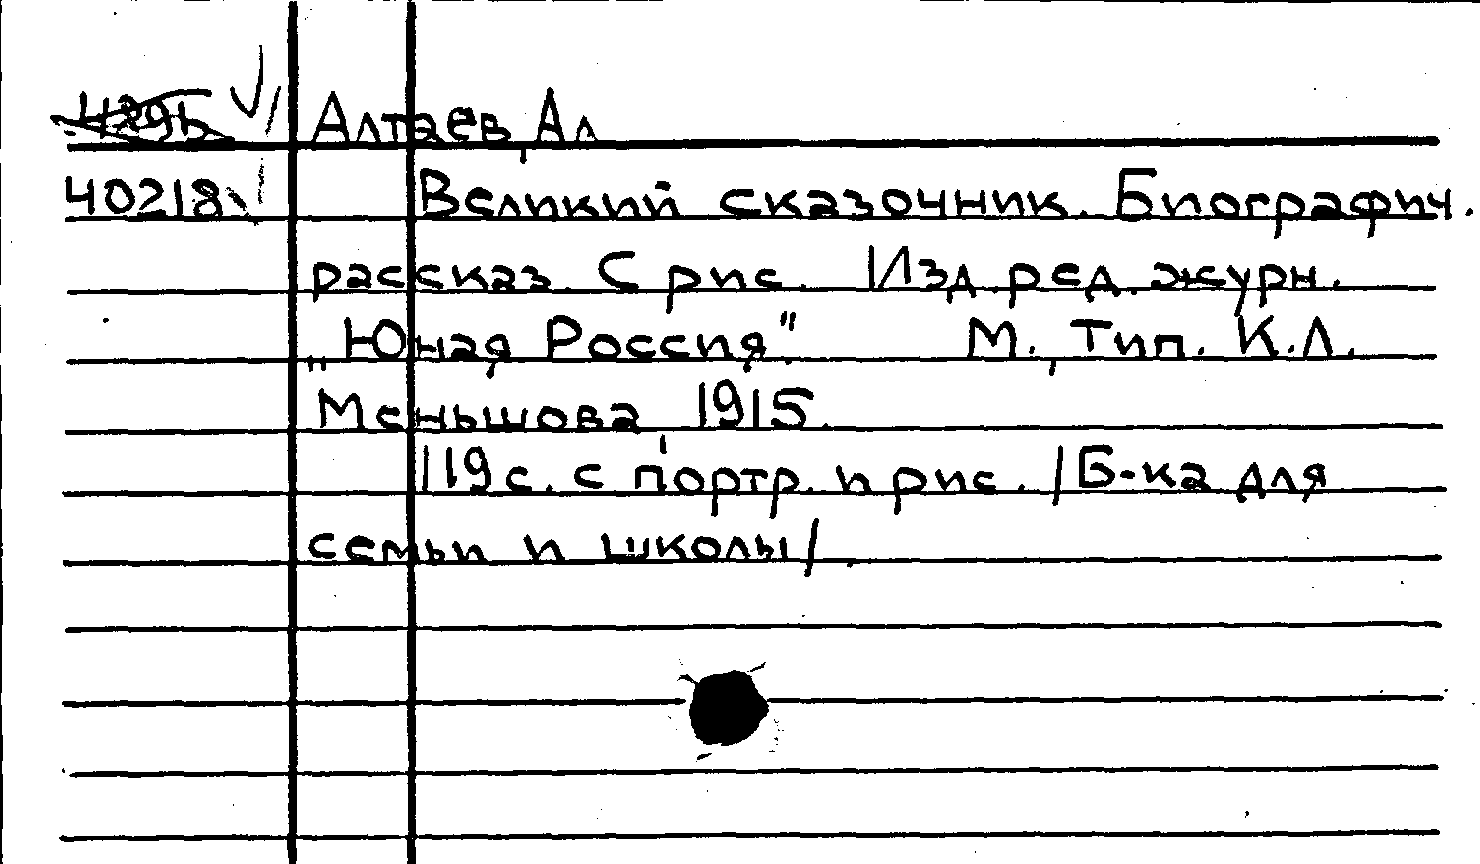 Алтаев, Ал
40218 Великий сказочник. Биографич.
рассказ. С рис. Изд. ред. журн.
„Юная Россия" М., Тип. К.Л.
Меньшова 1915.
119 с. с портр. и рис. /Б-ка для
семьи и школы/.